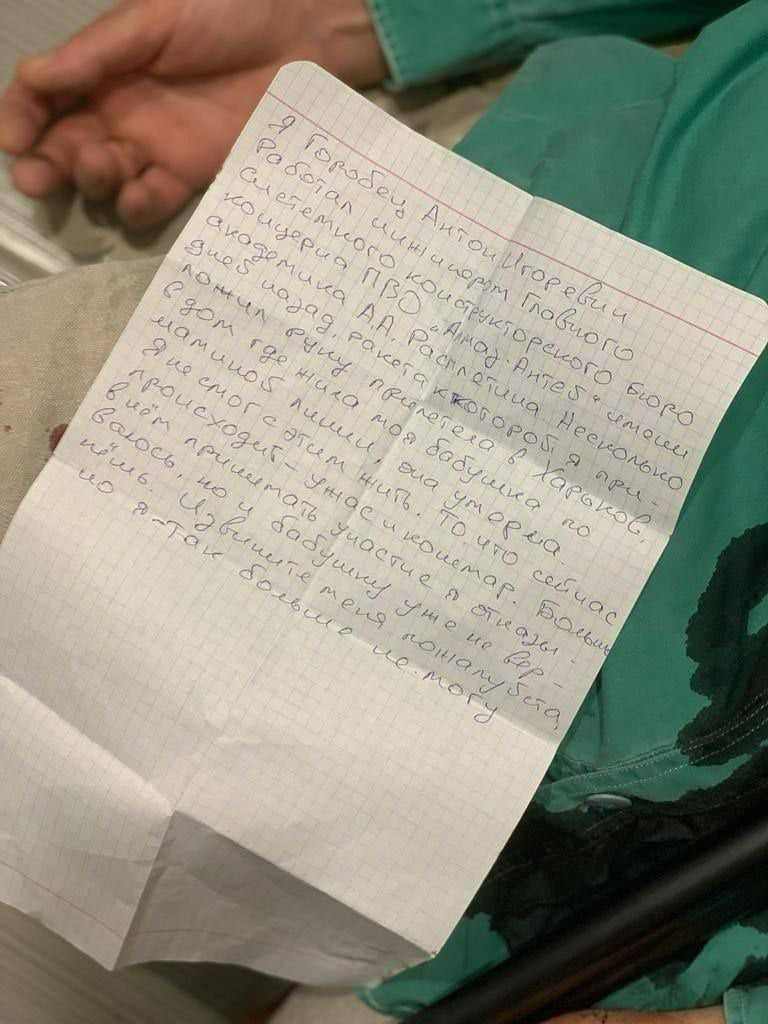 Я Горобец Антон Игоревич
Работал инжинером Главного
системного конструкторского бюро
концерна ПВО "Алмаз-Антей" имени
академика А.А. Расплетина Несколько
дней назад, ракета к которой я при-
ложил руку прилетела в Харьков,
в дом где жила моя бабушка по
маминой линии, она умерла.
Я не смог с этим жить. То что сейчас
происходит - ужас и кошмар. Больше
в нём принимать участие я отказы-
ваюсь, но и бабушку уже не вер-
нёшь. Извините меня пожалуйста,
но я - так больше не могу